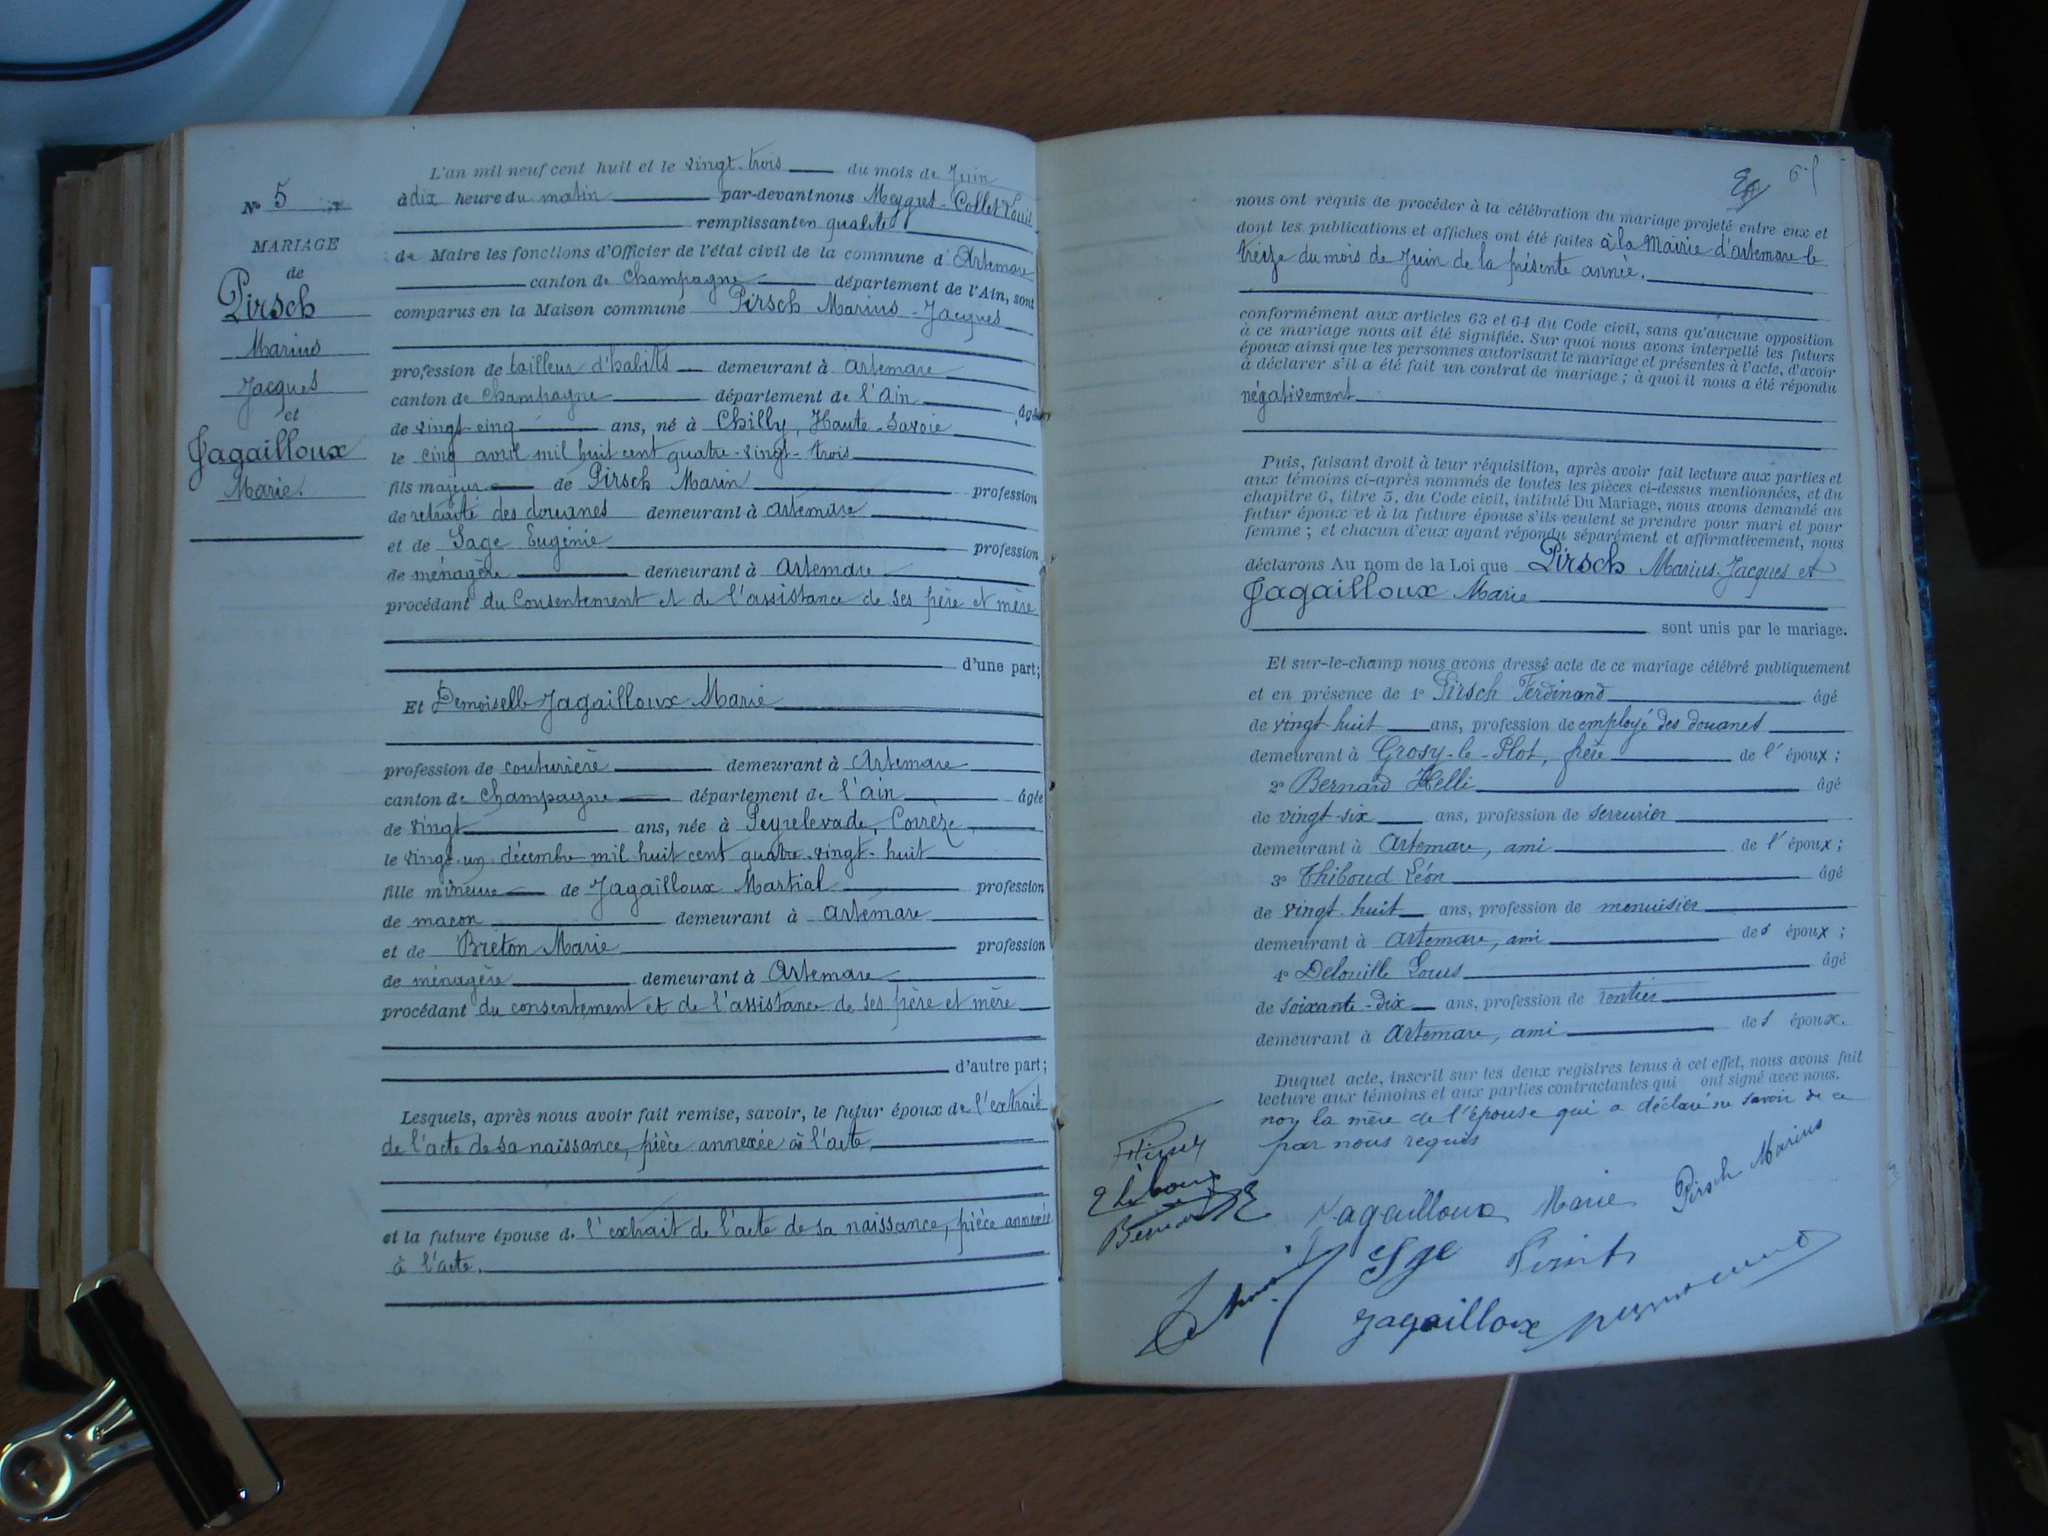 N° 5
MARIAGE
de
Pirsch
Marius
Jacques
et
Jagailloux
Marie.
L'an mil neuf cent huit et le vingt-trois du mois de Juin
à dix heure du matin par-devant nous Meygret-Collet Louis
remplissant en qualité
de Maire les fonctions d'Officier de l'état civil de la commune d'Artemare
canton de Champagne département de l'Ain, sont
comparus en la Maison commune Pirsch Marius-Jacques
profession de tailleur d'habits demeurant à Artemare
canton de Champagne département de l'Ain âgé
de vingt-cinq ans, né à Chilly, Haute-Savoie
le cinq avril mil huit cent quatre-vingt-trois
fils majeur de Pirsch Marin profession
de retraité des douanes demeurant à Artemare
et de Sage Eugénie profession
de ménagère demeurant à Artemare
procédant du Consentement et de l'assistance de ses père et mère
d'une part;
Et Demoiselle Jagailloux Marie
profession de couturière demeurant à Artemare
canton de Champagne département de l'Ain âgée
de vingt ans, née à Peyrelevade, Corrèze
le vingt-un décembre mil huit cent quatre-vingt-huit
fille mineure de Jagailloux Martial profession
de maçon demeurant à Artemare
et de Breton Marie profession
de ménagère demeurant à Artemare
procédant du consentement et de l'assistance de ses père et mère
d'autre part;
Lesquels, après nous avoir fait remise, savoir, le futur époux de l'extrait
de l'acte de sa naissance, pièce annexée à l'acte,
et la future épouse de l'extrait de l'acte de sa naissance, pièce annexée
à l'acte.
nous ont requis de procéder à la célébration du mariage projeté entre eux et
dont les publications et affiches ont été faites à la Mairie d'Artemare le
treize du mois de Juin de la présente année.
conformément aux articles 63 et 64 du Code civil, sans qu'aucune opposition
à ce mariage nous ait été signifiée. Sur quoi nous avons interpellé les futurs
époux ainsi que les personnes autorisant le mariage et présentes à l'acte, d'avoir
à déclarer s'il a été fait un contrat de mariage; à quoi il nous a été répondu
négativement
Puis, faisant droit à leur réquisition, après avoir fait lecture aux parties et
aux témoins ci-après nommés de toutes les pièces ci-dessus mentionnées, et du
chapitre 6, titre 5, du Code civil, intitulé Du Mariage, nous avons demandé au
futur époux et à la future épouse s'ils veulent se prendre pour mari et pour
femme; et chacun d'eux ayant répondu séparément et affirmativement, nous
déclarons Au nom de la Loi que Pirsch Marius-Jacques et
Jagailloux Marie
sont unis par le mariage.
Et sur-le-champ nous avons dressé acte de ce mariage célébré publiquement
et en présence de 1° Pirsch Ferdinand âgé
de vingt-huit ans, profession de employé des douanes
demeurant à Grosy-le-Plot, frère de l'époux;
2° Bernard Helli âgé
de vingt-six ans, profession de serrurier
demeurant à Artemare, ami de l'époux;
3° Thiboud Léon âgé
de vingt-huit ans, profession de menuisier
demeurant à Artemare, ami des époux;
4° Delouille Louis âgé
de soixante-dix ans, profession de rentier
demeurant à Artemare, ami des époux.
Duquel acte, inscrit sur les deux registres tenus à cet effet, nous avons fait
lecture aux témoins et aux parties contractantes qui ont signé avec nous.
non la mère de l'épouse qui a déclaré ne savoir de ce
par nous requis
Jagailloux Marie Pirsch Marius
Jagailloux